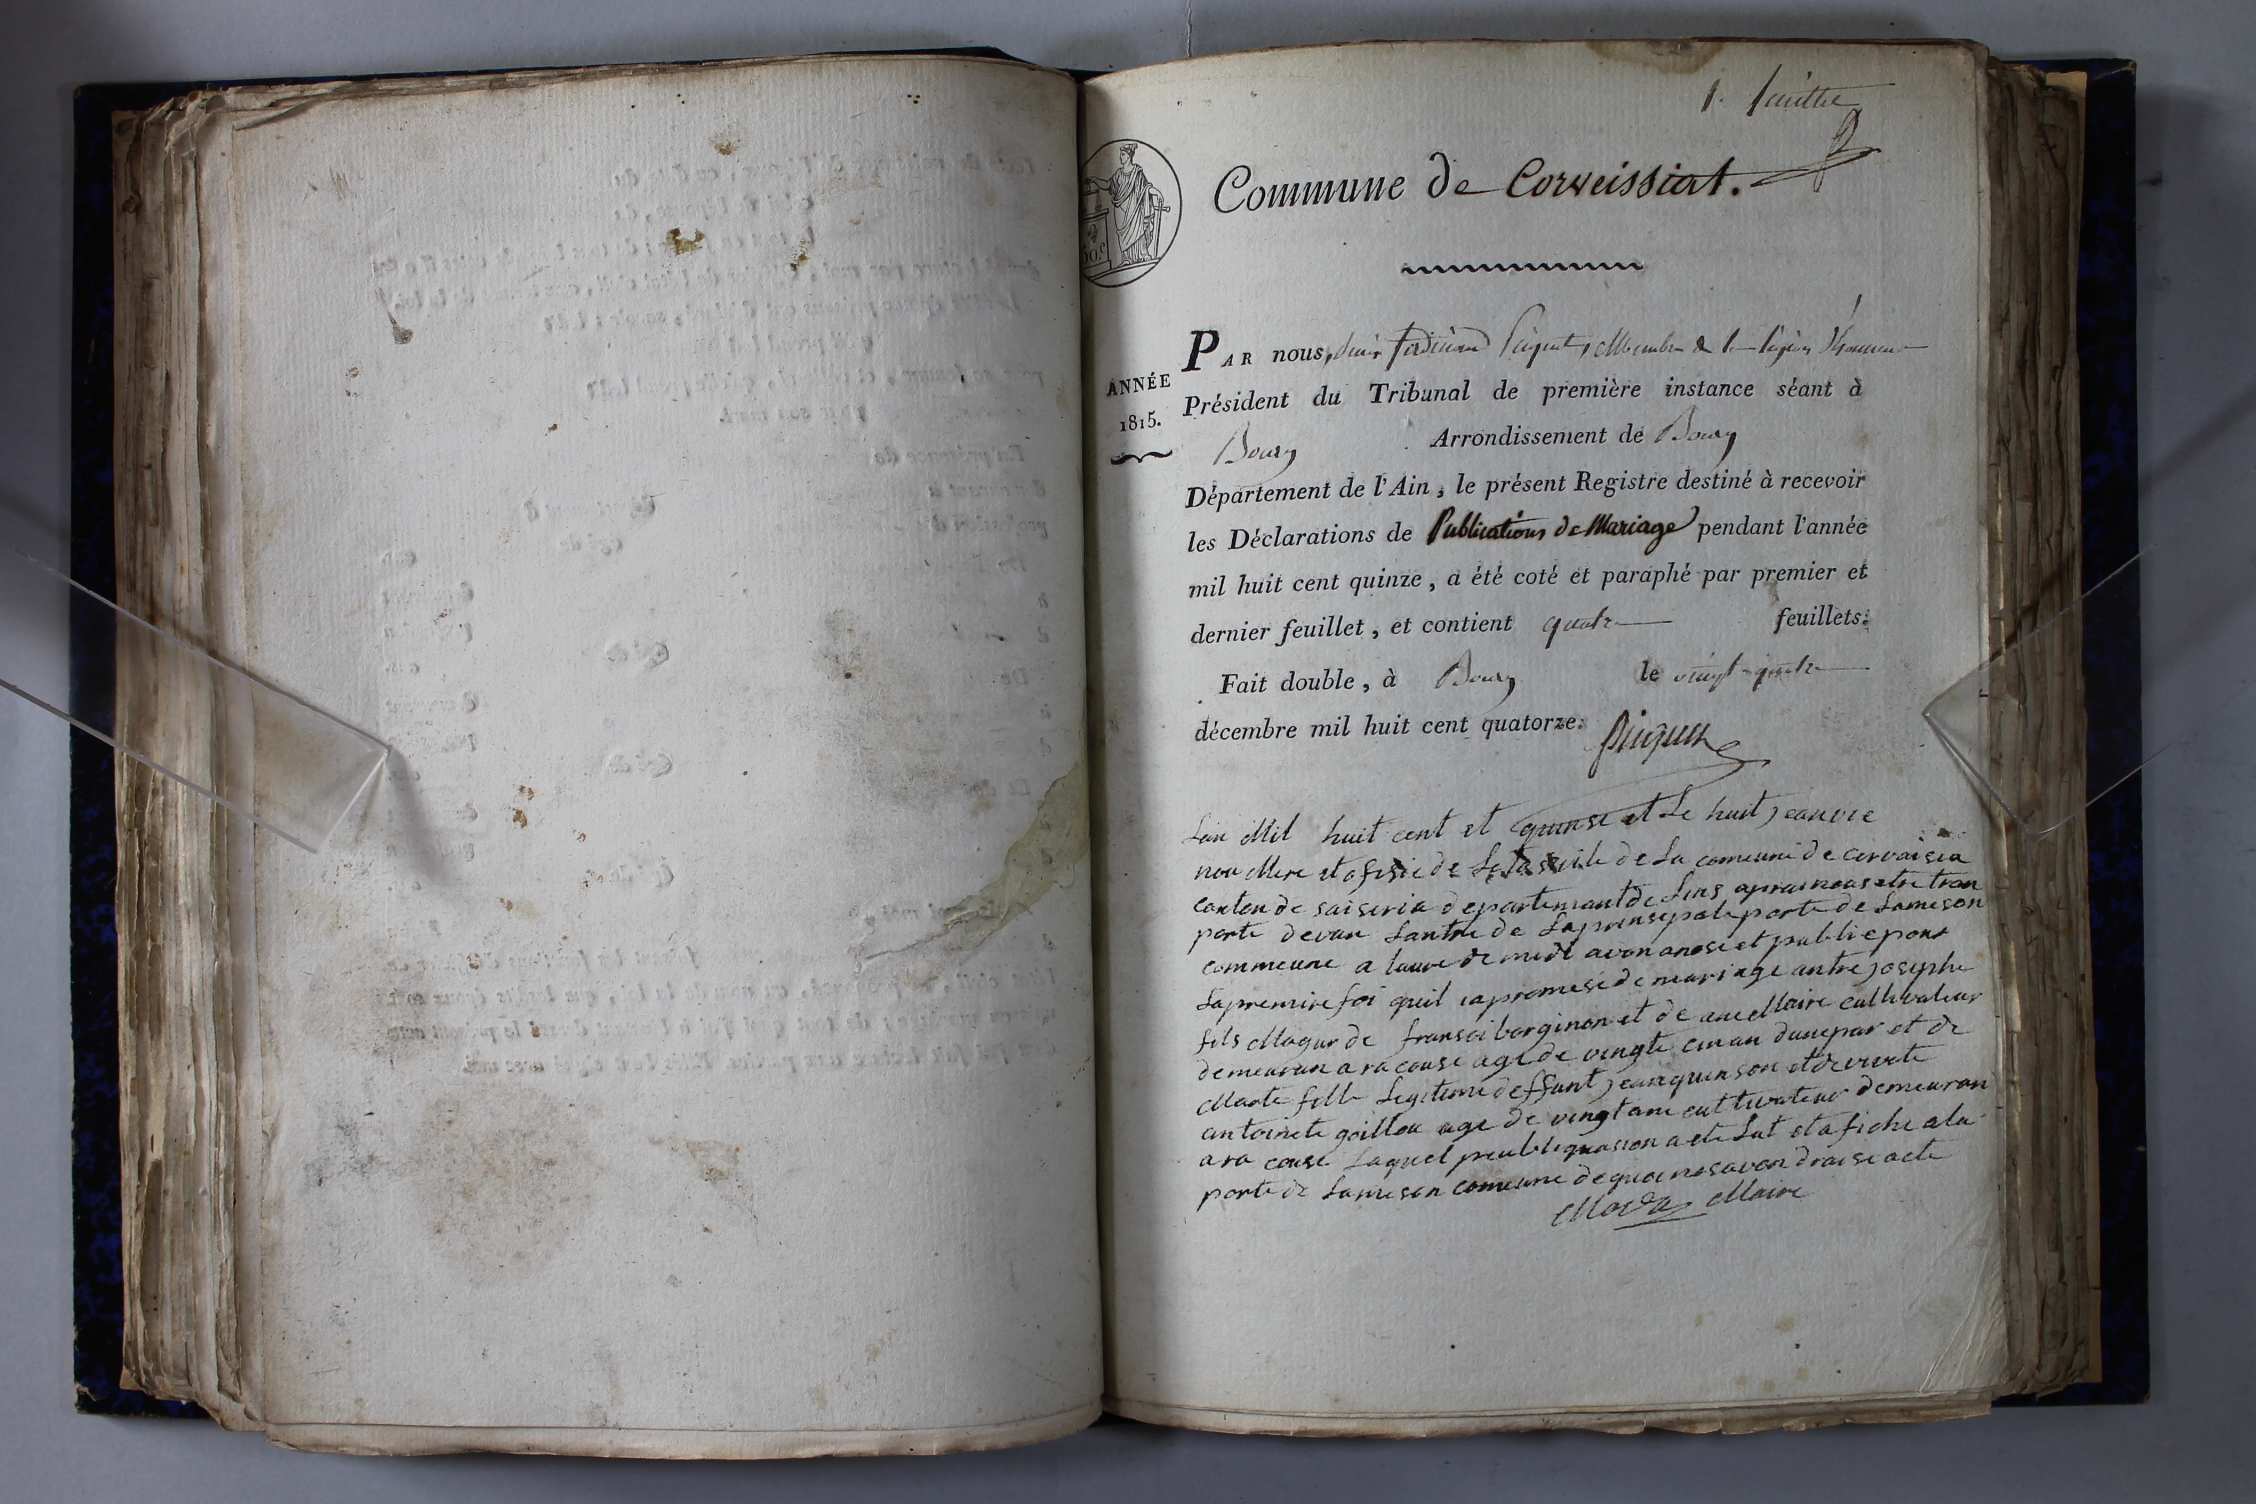 1. feuillet
Commune de Corveissiat.
ANNÉE
1815.
PAR nous, Ferdinand Piquet, Membre de la légion d'honneur
Président du Tribunal de première instance séant à
Bourg Arrondissement de Bourg
Département de l'Ain, le présent Registre destiné à recevoir
les Déclarations de Publications de Mariage pendant l'année
mil huit cent quinze, a été coté et paraphé par premier et
dernier feuillet, et contient quatre feuillets.
Fait double, à Bourg le vingt-quatre
décembre mil huit cent quatorze.
Piquet
Lan Mil huit cent et quinse et Le huit jeanvie
nou Mere et ofisie de de La comeune de corvaisia
canton de saiseria departemant de Lins aprai nous etre tran
porte devan Lantre de Laprinsepale porte de Lameson
commeune a laure de midi avon anose et publie pour
Lapremire foi queil iapromese de mariage antre josephe
fils Magur de fransoi borginon et de ane Maire cultivateur
demeuran a racouse age de vingte cin an dunepar et de
Marte fille Legitime deffunt jean quinson et de vivete
antoinete goillou age de vingt ane cultivateur demeuran
a ra couse Laquel peubliquasion a ete Lut et afiche a la
porte de Lameson comeune de quoi nosavon draise acte
Morda Maire